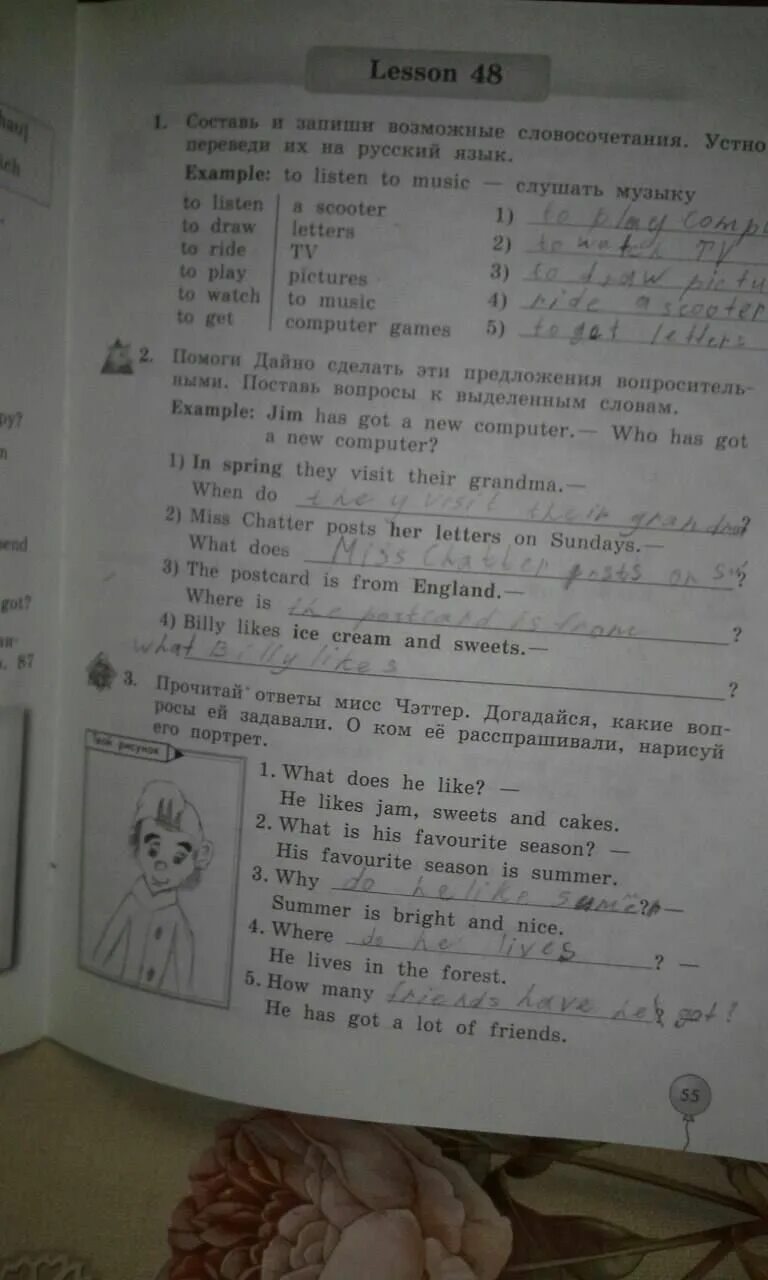 hau]
ich
ру?
m
send
got?
ая-
. 87
Lesson 48
1. Составь и запиши возможные словосочетания. Устно
переведи их на русский язык.
Example: to listen to music — слушать музыку
to listen a scooter 1) to play comp
to draw letters 2) to watch TV
to ride TV 3) to draw pictu
to play pictures 4) ride a scooter
to watch to music 5) to get letters
to get computer games
2. Помоги Дайно сделать эти предложения вопроситель-
ными. Поставь вопросы к выделенным словам.
Example: Jim has got a new computer.— Who has got
a new computer?
1) In spring they visit their grandma.—
When do they visit their grandma?
2) Miss Chatter posts her letters on Sundays.—
What does Miss Chatter posts on ?
3) The postcard is from England.—
Where is the postcard is from ?
4) Billy likes ice cream and sweets.—
what Billy likes ?
3. Прочитай ответы мисс Чэттер. Догадайся, какие воп-
росы ей задавали. О ком её расспрашивали, нарисуй
его портрет.
Твой рисунок
1. What does he like? —
He likes jam, sweets and cakes.
2. What is his favourite season? —
His favourite season is summer.
3. Why do he like ? —
Summer is bright and nice.
4. Where do he lives ? —
He lives in the forest.
5. How many friends have he got?
He has got a lot of friends.
55